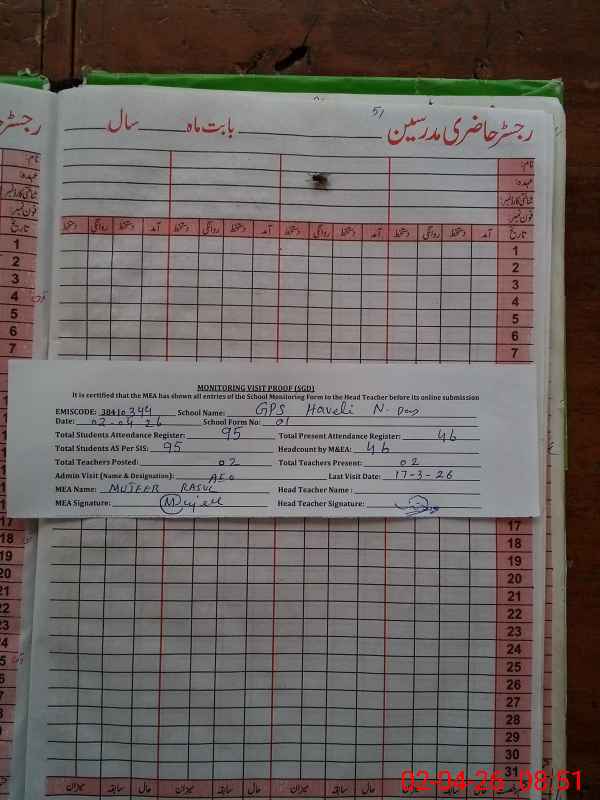 5/
رجسٹر حاضری مدرسین بابت ماہ سال
نام:
عہدہ:
شناختی کارڈ نمبر:
فون نمبر:
تاریخ آمد دستخط روانگی دستخط آمد دستخط روانگی دستخط آمد دستخط روانگی دستخط آمد دستخط روانگی دستخط
1
2
3
4
5
6
7
MONITORING VISIT PROOF (SGD)
It is certified that the MEA has shown all entries of the School Monitoring Form to the Head Teacher before its online submission
EMISCODE: 38410344 School Name: GPS Haveli N.
Date: 02-04-26 School Form No: 01
Total Students Attendance Register: 95 Total Present Attendance Register: 46
Total Students AS Per SIS: 95 Headcount by M&EA: 46
Total Teachers Posted: 02 Total Teachers Present: 02
Admin Visit (Name & Designation): AEO Last Visit Date: 17-3-26
MEA Name: RASUL Head Teacher Name :
MEA Signature: Head Teacher Signature:
17
18
19
20
21
22
23
24
25
26
27
28
29
30
31
حال سابقہ میزان حال سابقہ میزان حال سابقہ میزان حال سابقہ میزان
رجسٹر حا
1
2
3
4
5
6
7
17
18
19
20
21
22
23
24
25
26
27
28
29
30
31
02-04-26 08:51